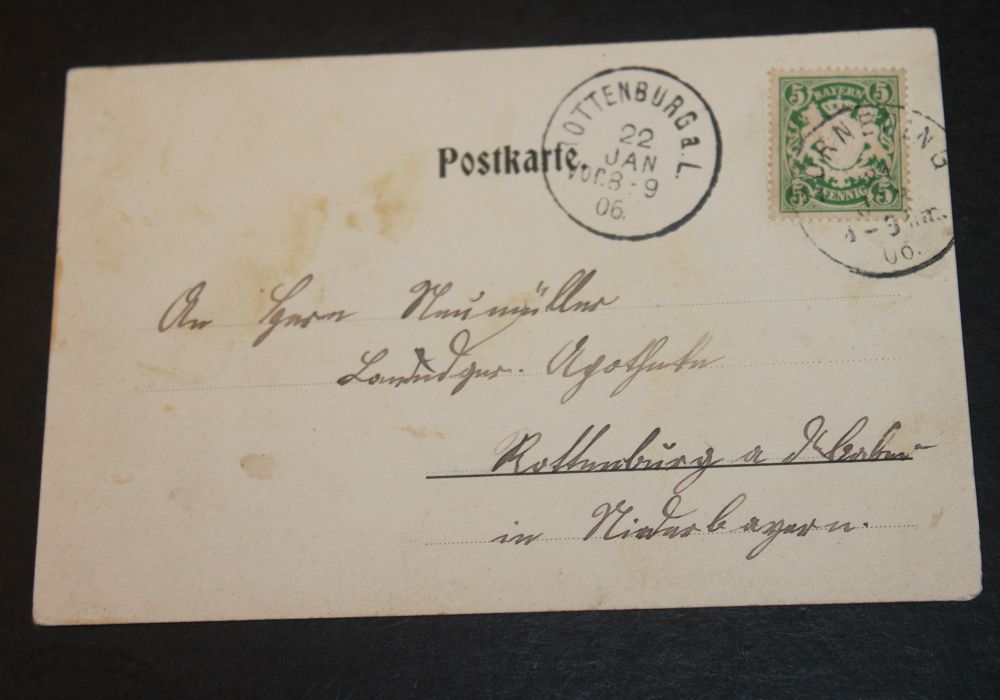 Postkarte.
ROTTENBURG a. L.
22
JAN
Vor. 8-9
06.
5 BAYERN 5
5 PFENNIG 5
06.
An Herrn Neumüller
Apotheke
Rottenburg a d
in Niederbayern.